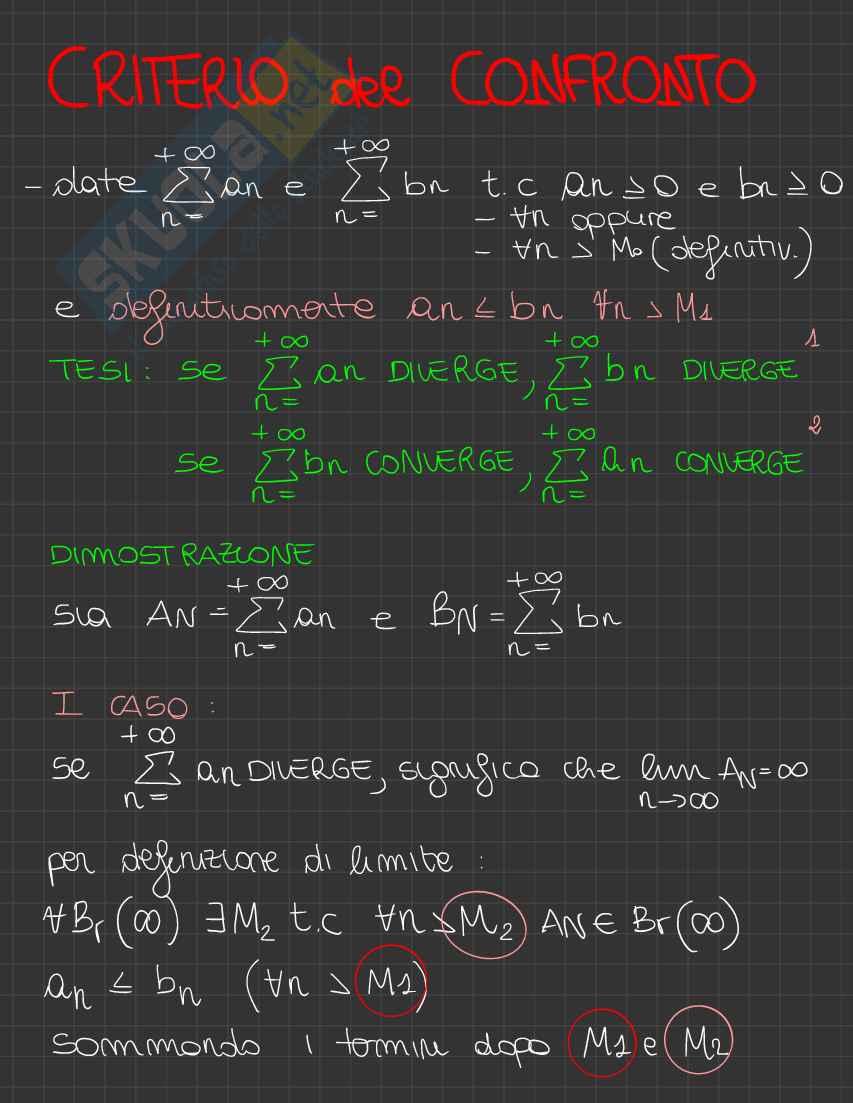 CRITERIO del CONFRONTO
skuola.net
+∞ +∞
- date ∑ an e ∑ bn t.c an ≥ 0 e bn ≥ 0
n= n= - ∀n oppure
- ∀n > M₀ (definitiv.)
e definitivamente an ≤ bn ∀n > M1
+∞ +∞ 1
TESI: se ∑ an DIVERGE, ∑ bn DIVERGE
n= n=
+∞ +∞ 2
se ∑ bn CONVERGE, ∑ an CONVERGE
n= n=
DIMOSTRAZIONE
+∞ +∞
sia AN = ∑ an e BN = ∑ bn
n= n=
I CASO :
+∞
se ∑ an DIVERGE, significa che lim AN = ∞
n= n→∞
per definizione di limite :
∀Br(∞) ∃M₂ t.c ∀n > M₂ AN ∈ Br(∞)
an ≤ bn (∀n > M1)
sommando i termini dopo M1 e M2